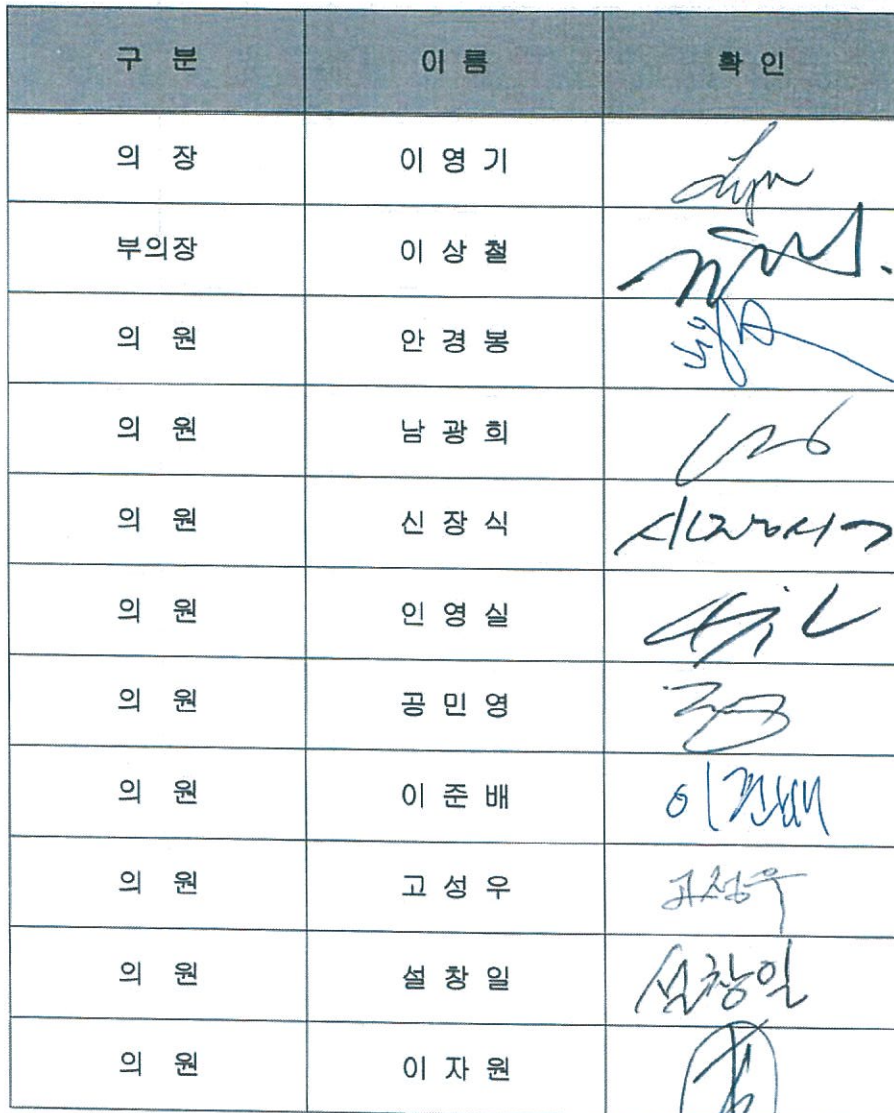 구 분 이 름 확 인
의 장 이 영 기
부의장 이 상 철
의 원 안 경 봉
의 원 남 광 희
의 원 신 장 식 신장식
의 원 인 영 실
의 원 공 민 영
의 원 이 준 배 이준배
의 원 고 성 우 고성우
의 원 설 창 일 설창일
의 원 이 자 원